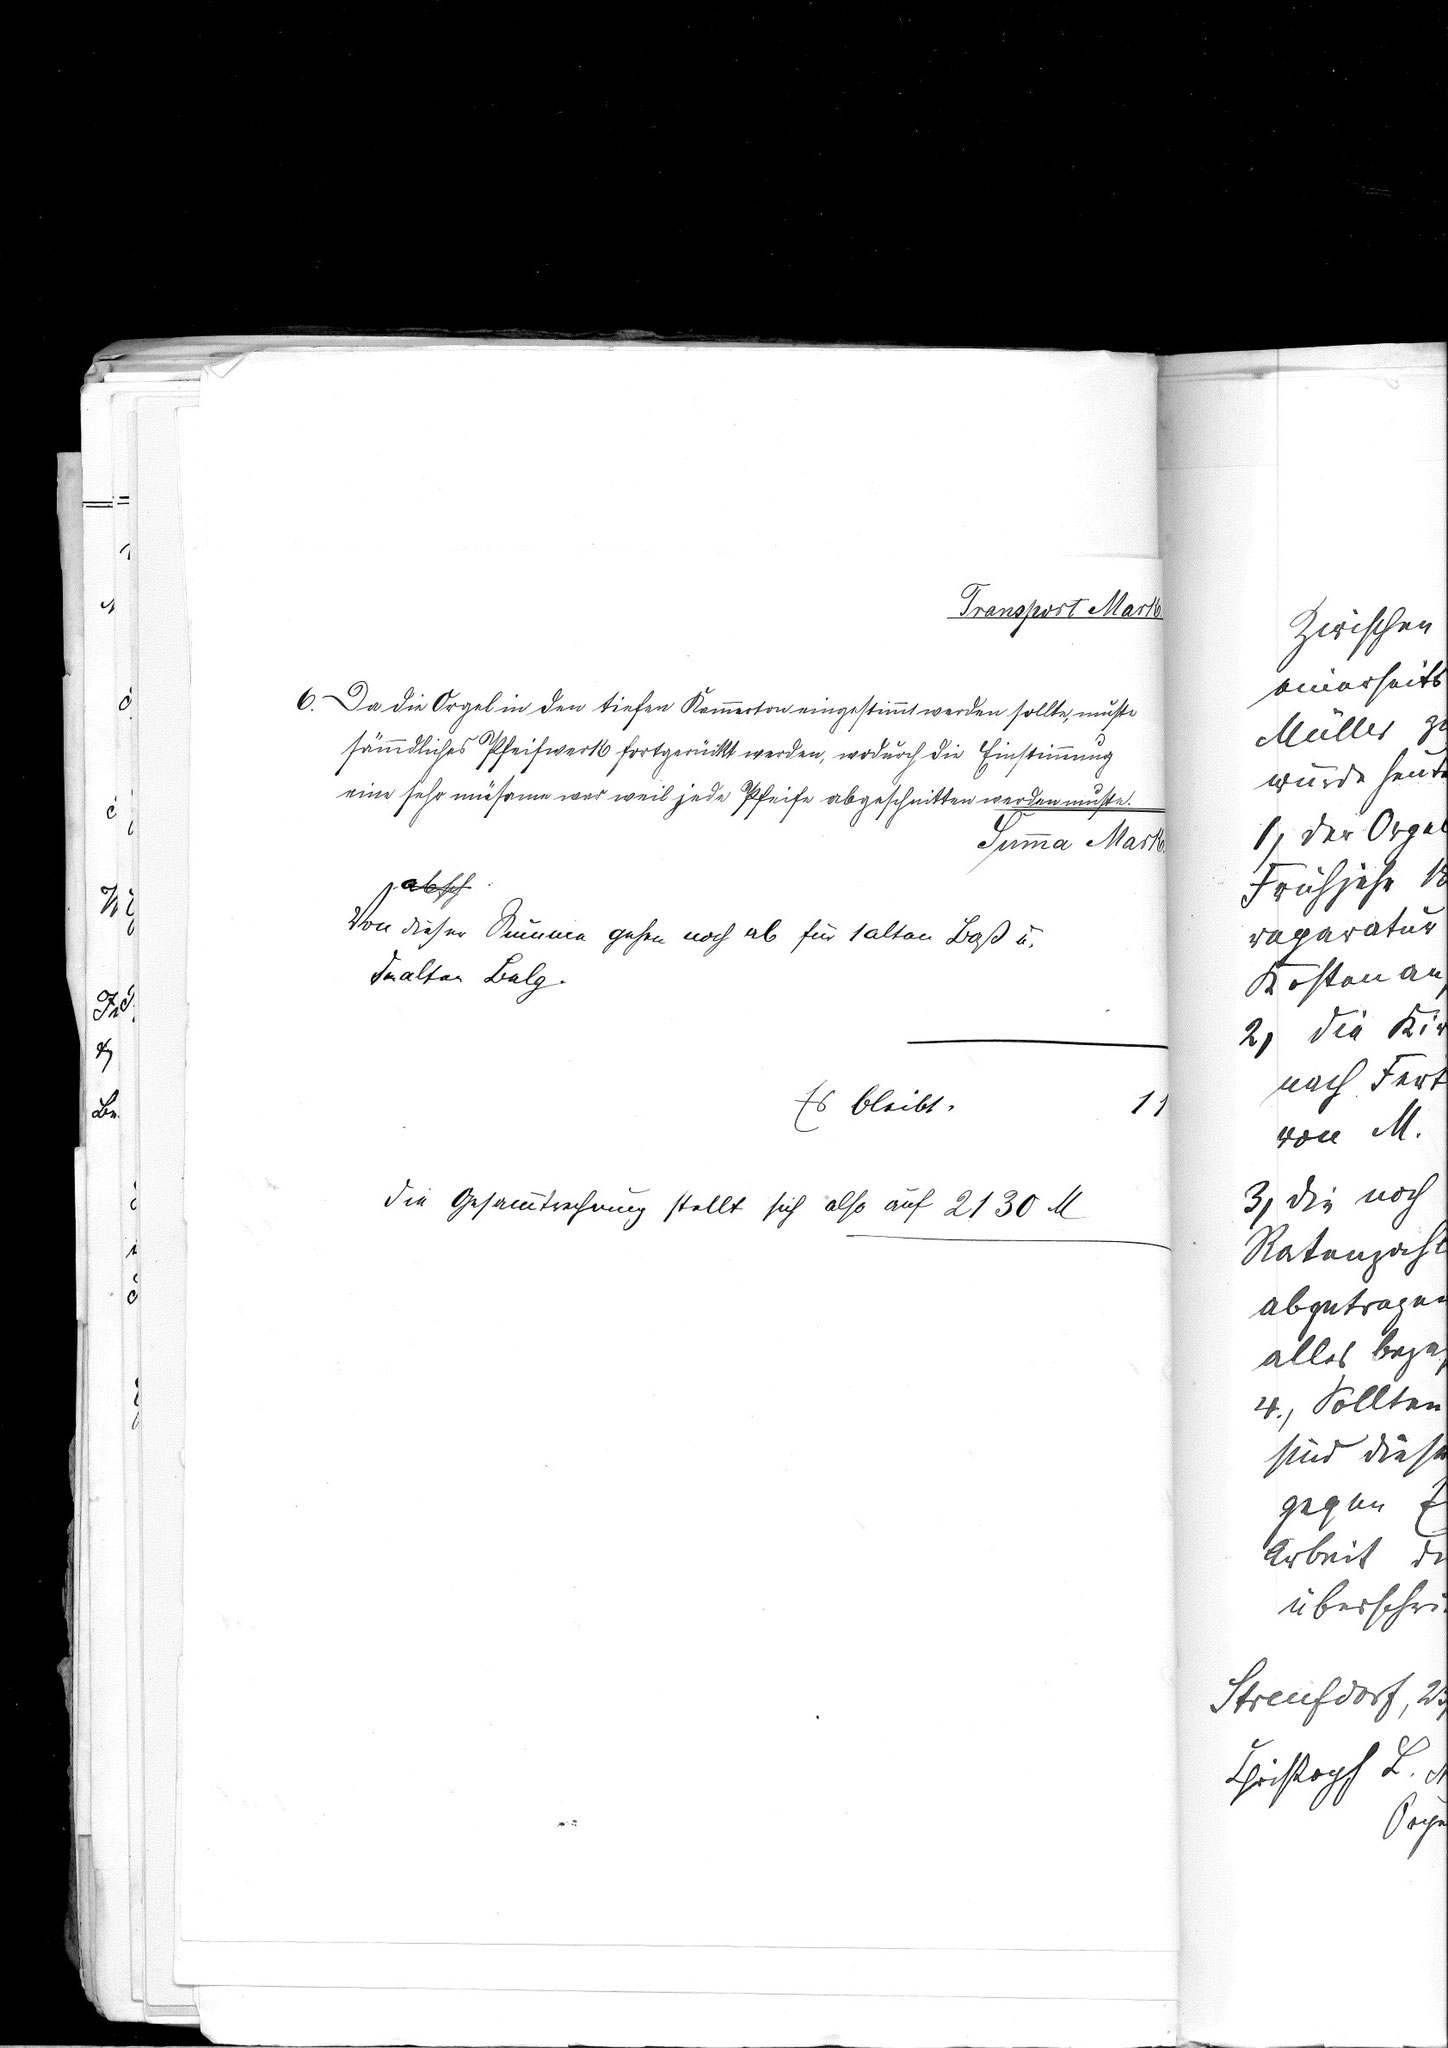 Transport Mark
6. Da die Orgel in den tiefen Kam̄erton eingestim̄t werden sollte, muste
säm̄dliches Pfeifwerk fortgerückt werden, wodurch die Einstim̄ung
eine sehr müesame war weil jede Pfeife abgeschnitten werden muste.
Sum̄a Mark
absch
Von dieser Summe gehen noch ab für 1 alten Baß u.
den alten Balg.
Es bleibt. 11
Die Gesam̄trechnung stellt sich also auf 2130 M
Zwischen
einerseits
Müller zu
wurde heute
1, der Orgel
Frühjahr 18
reparatur
Kosten an
2, die Kir
nach Fert
von M.
3, die noch
Ratenzahl
abgetragen
alles beza
4., Sollten
sind diese
gegen E
Arbeit de
überschri
Streufdorf, 23
Christoph L. M
Orge